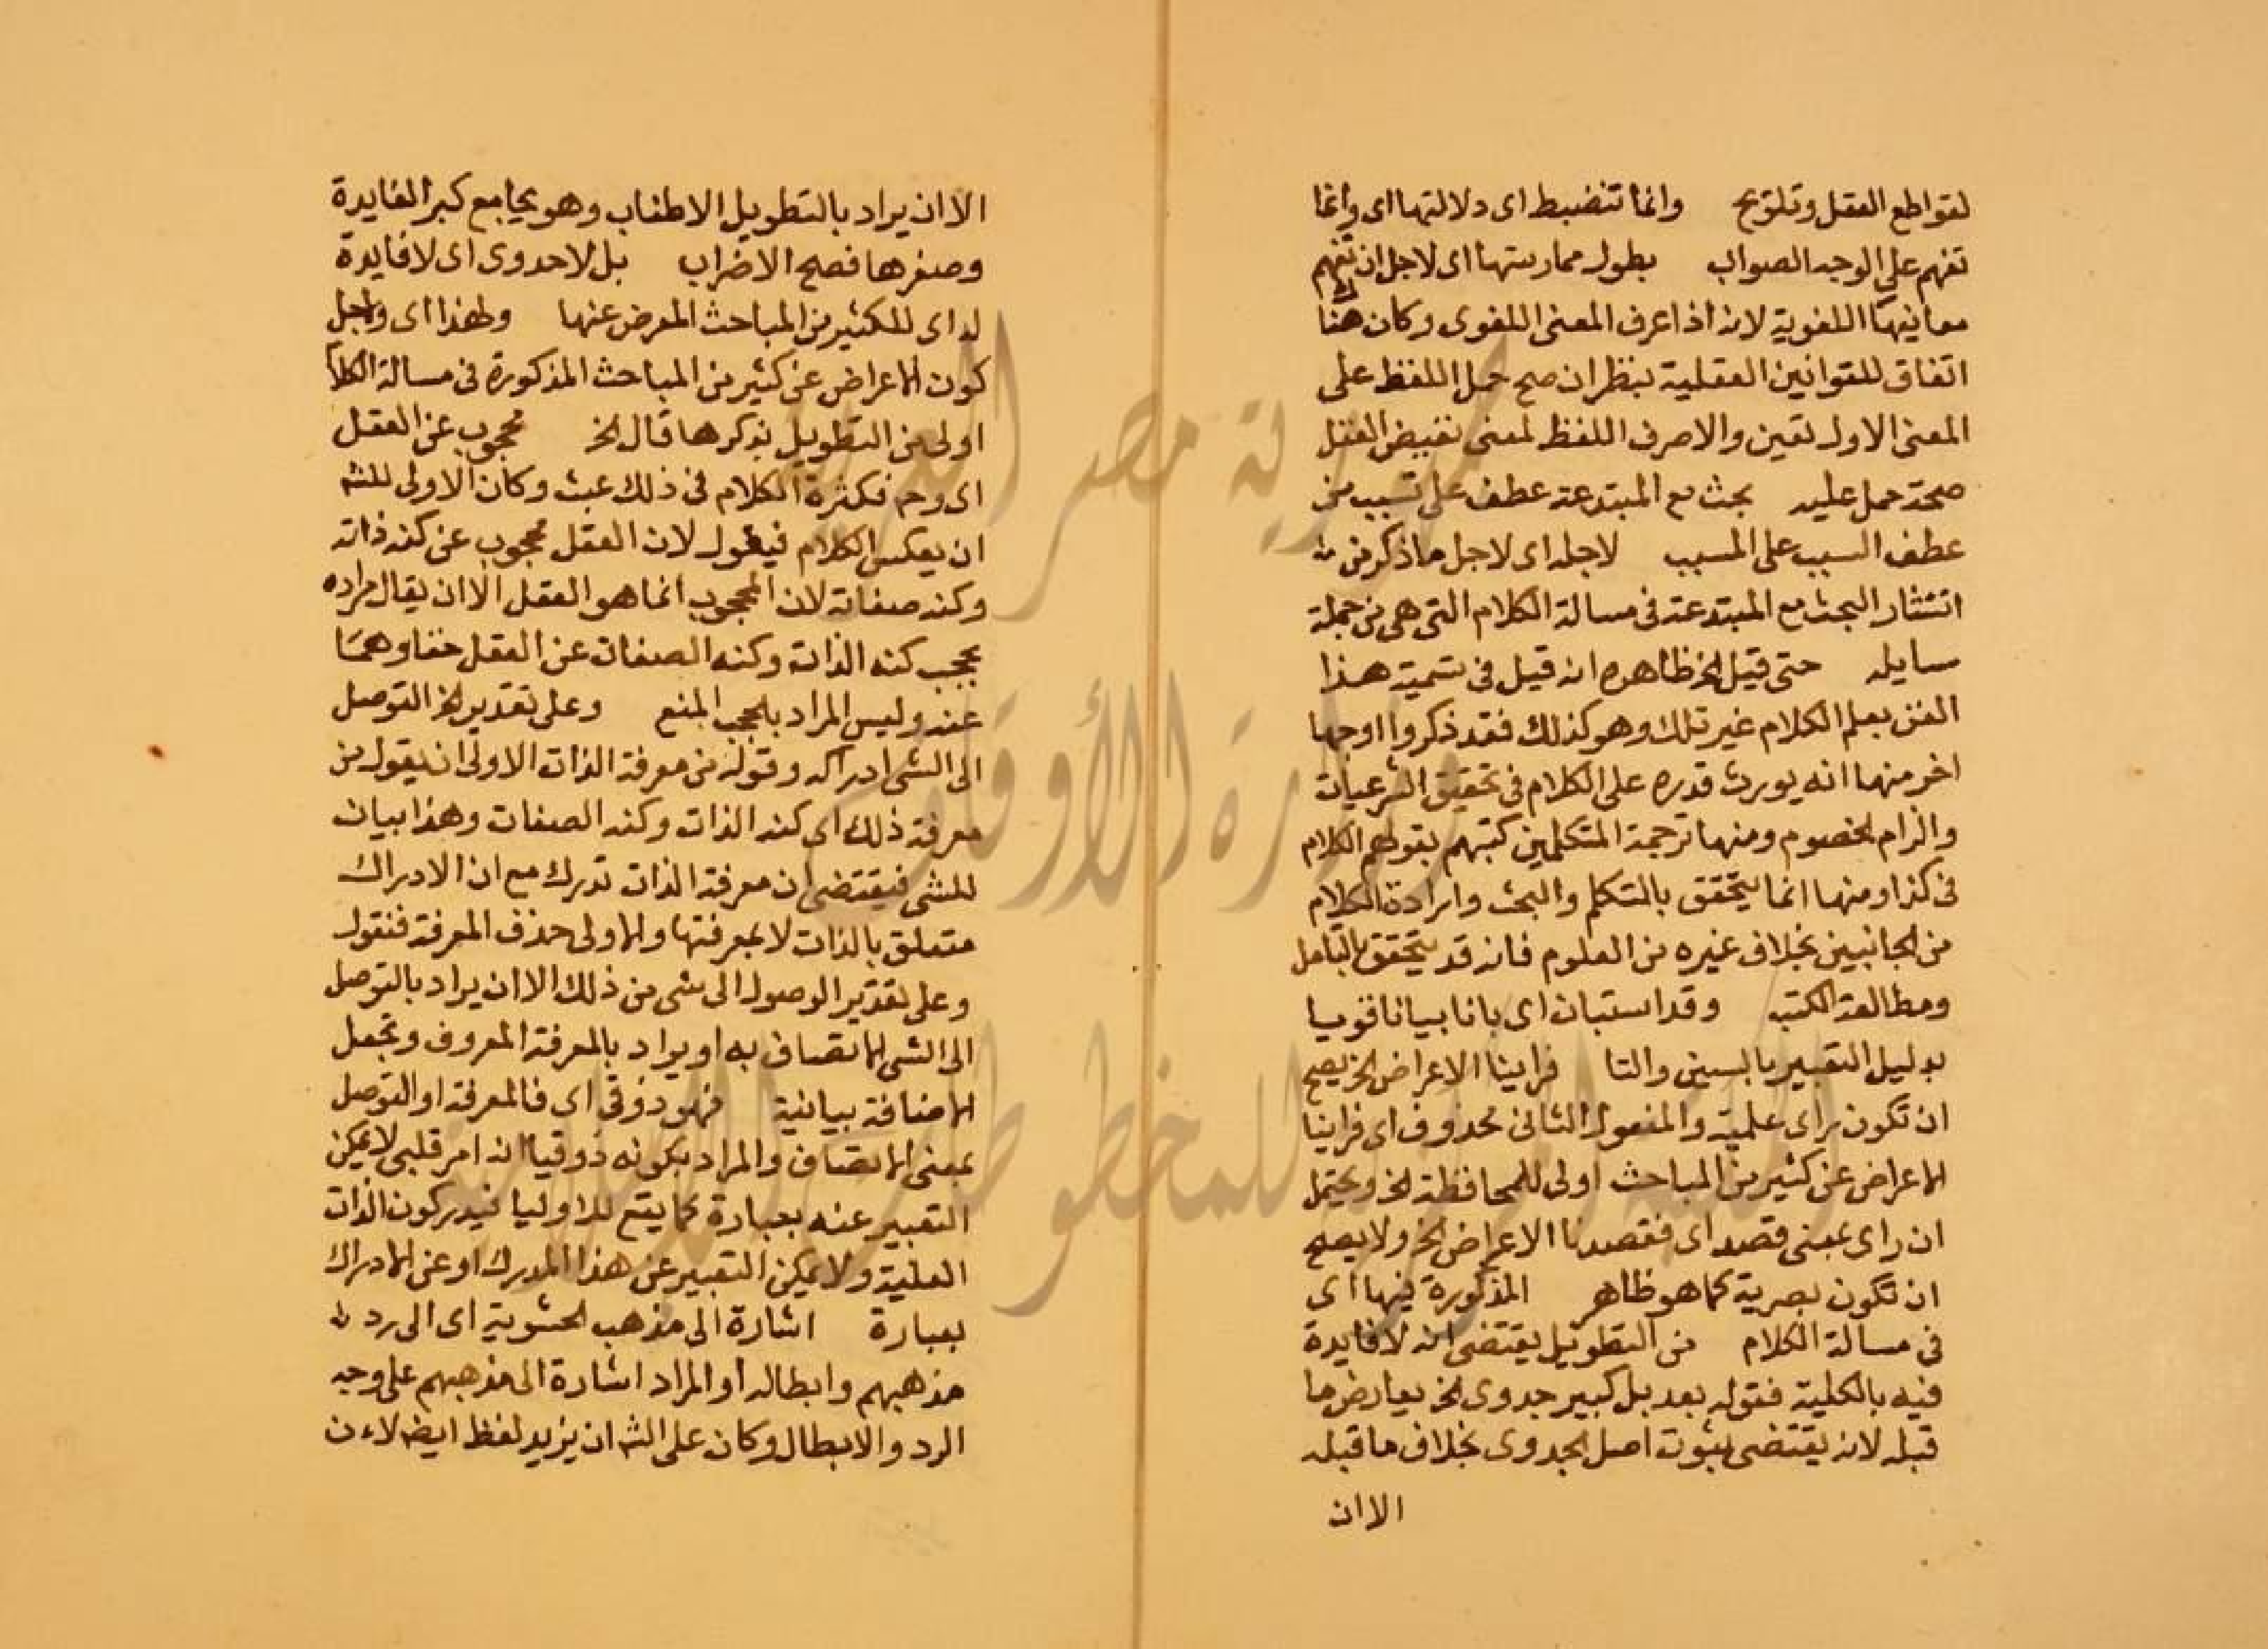 لقواطع العقل وتلويح وانما تنضبط اى دلالتها اى وانما
تفهم على الوجه الصواب بطول ممارستها اى لاجل ان تفهم
معانيها اللغوية لانه اذا عرف المعنى اللغوى وكان هنا
اتفاق للقوانين العقلية ينظر ان صح حمل اللفظ على
المعنى الاول تعين والا صرف اللفظ لمعنى نقيض العقل
صحة حمل عليه بحث مع المبتدعة عطف على تشبب من
عطف السبب على المسبب لاجله اى لاجل ما ذكر من
انتشار البحث مع المبتدعة فى مسالة الكلام التى هى من جملة
مسايله حتى قيل الخ ظاهره انه قيل فى تسمية هذا
الفن بعلم الكلام غير تلك وهو كذلك فقد ذكروا اوجها
اخر منها انه يورث قدره على الكلام فى تحقيق الشرعيات
والزام الخصوم ومنها ترجمة المتكلمين كتبهم بقولهم الكلام
فى كذا ومنها انما يتحقق بالمتكلم والبحث وارادة الكلام
من الجانبين بخلاف غيره من العلوم فانه قد يتحقق بالتامل
ومطالعة الكتب وقد استبان اى بانا بيانا قويا
بدليل التعبير بالسين والتا فراينا الاعراض الخ يصح
ان تكون راى علمية والمفعول الثانى محذوف اى فراينا
الاعراض عن كثير من المباحث اولى للمحافظة الخ ويحتمل
ان راى بمعنى قصد اى فقصدنا الاعراض الخ ولا يصح
ان تكون بصرية كما هو ظاهر المذكورة فيها اى
فى مسالة الكلام من التطويل يقتضى انه لا فايدة
فيه بالكلية فقوله بعد بل كبير جدوى الخ يعارض ما
قبله لانه يقتضى ثبوت اصل الجدوى بخلاف ما قبله
الا ان
الا ان يراد بالتطويل الاطناب وهو يجامع كبر الفايدة
وصغرها فصح الاضراب بل لا جدوى اى لا فايدة
له اى للكثير من المباحث المعرض عنها ولهذا اى ولاجل
كون الاعراض عن كثير من المباحث المذكورة فى مسالة الكلام
اولى من التطويل بذكرها قال الخ محجوب عن العقل
اى وح فكثرة الكلام فى ذلك عبث وكان الاولى للشه
ان يعكس الكلام فيقول لان العقل محجوب عن كنه ذاته
وكنه صفاته لان المحجوب انما هو العقل الا ان يقال مراده
بحجب كنه الذات وكنه الصفات عن العقل خفاوهما
عنه وليس المراد بالحجب المنع وعلى تقدير الخ التوصل
الى الشى ادراكه وقوله من معرفة الذات الاولى ان يقول من
معرفة ذلك اى كنه الذات وكنه الصفات وهذا بيان
للشى فيقتضى ان معرفة الذات تدرك مع ان الادراك
متعلق بالذات لا بمعرفتها والاولى حذف المعرفة فنقول
وعلى تقدير الوصول الى شى من ذلك الا ان يراد بالتوصل
الى الشى الاتصاف به او يراد بالمعرفة المعروف وتجعل
الاضافة بيانية فهو ذوقى اى فالمعرفة او التوصل
بمعنى الاتصاف والمراد بكونه ذوقيا انه امر قلبى لا يمكن
التعبير عنه بعبارة كما يقع للاوليا فيدركون الذات
العلية ولا يمكن التعبير عن هذا المدرك او عن الادراك
بعبارة اشارة الى مذهب الحشوية اى الى رد
مذهبهم وابطاله او المراد اشارة الى مذهبهم على وجه
الرد والابطال وكان على الشه ان يزيد لفظ ايضه لاءن